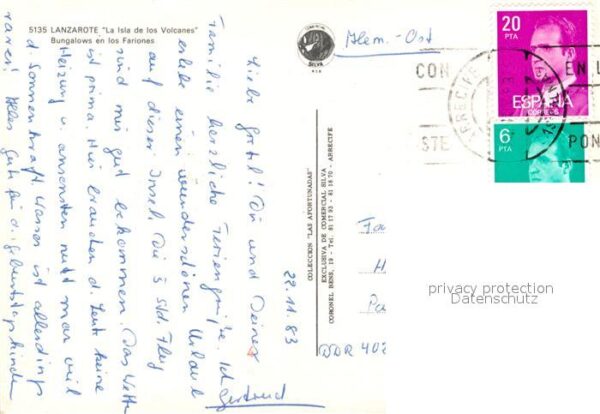 5135 LANZAROTE "La Isla de los Volcanes"
Bungalows en los Fariones
COMERCIAL
SILVA
Alem.-Ost
20
PTA
ESPAÑA
CORREOS
6
PTA
CON
EN L
STE
PON
ARRECIFE
22.11.83
Liebe Gretil! Dir und Deiner
Familie herzliche Feriengrüße. Ich
erlebe einen wunderschönen Urlaub
auf dieser Insel. Die 5 Std. Flug
sind mir gut bekommen. Das Wetter
ist prima. Hier brauchen d. Leute keine
Heizung u. ansonsten nutzt man viel
d. Sonnenkraft. Wasser ist allerdings
rarer! Alles Gute für d. Geburtstagskinder
Gertrud
COLECCION "LAS AFORTUNADAS"
EXCLUSIVA DE COMERCIAL SILVA
CORONEL BENS, 19 - Telfs. 81 18 70 - ARRECIFE
Fa
H
Pa
DDR 402
privacy protection
Datenschutz